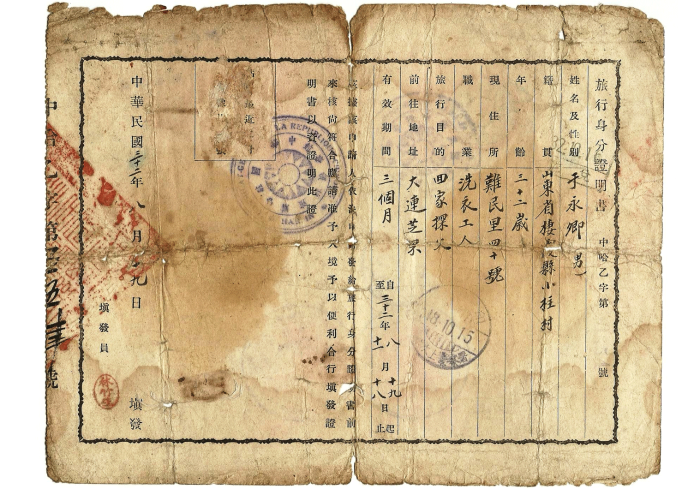 旅行身分證明書 中哈乙字第 號
姓名及性別 于永卿(男)
籍貫 山東省棲霞縣小柱村
年齡 三十二歲
現住所 難民里四十號
職業 洗衣工人
旅行目的 回家探父
前往地址 大連芝罘
有效期間 三個月 自三十二年八月十九起
至十一月十八止
該申請人 旅行身分證明書前
來核尚符合應請准予入境予以便利合行填發證
明書以資證明此證
中華民國三十二年八月十九日
填發員 填發
第 號
LA REPUBLIQUE
10.15